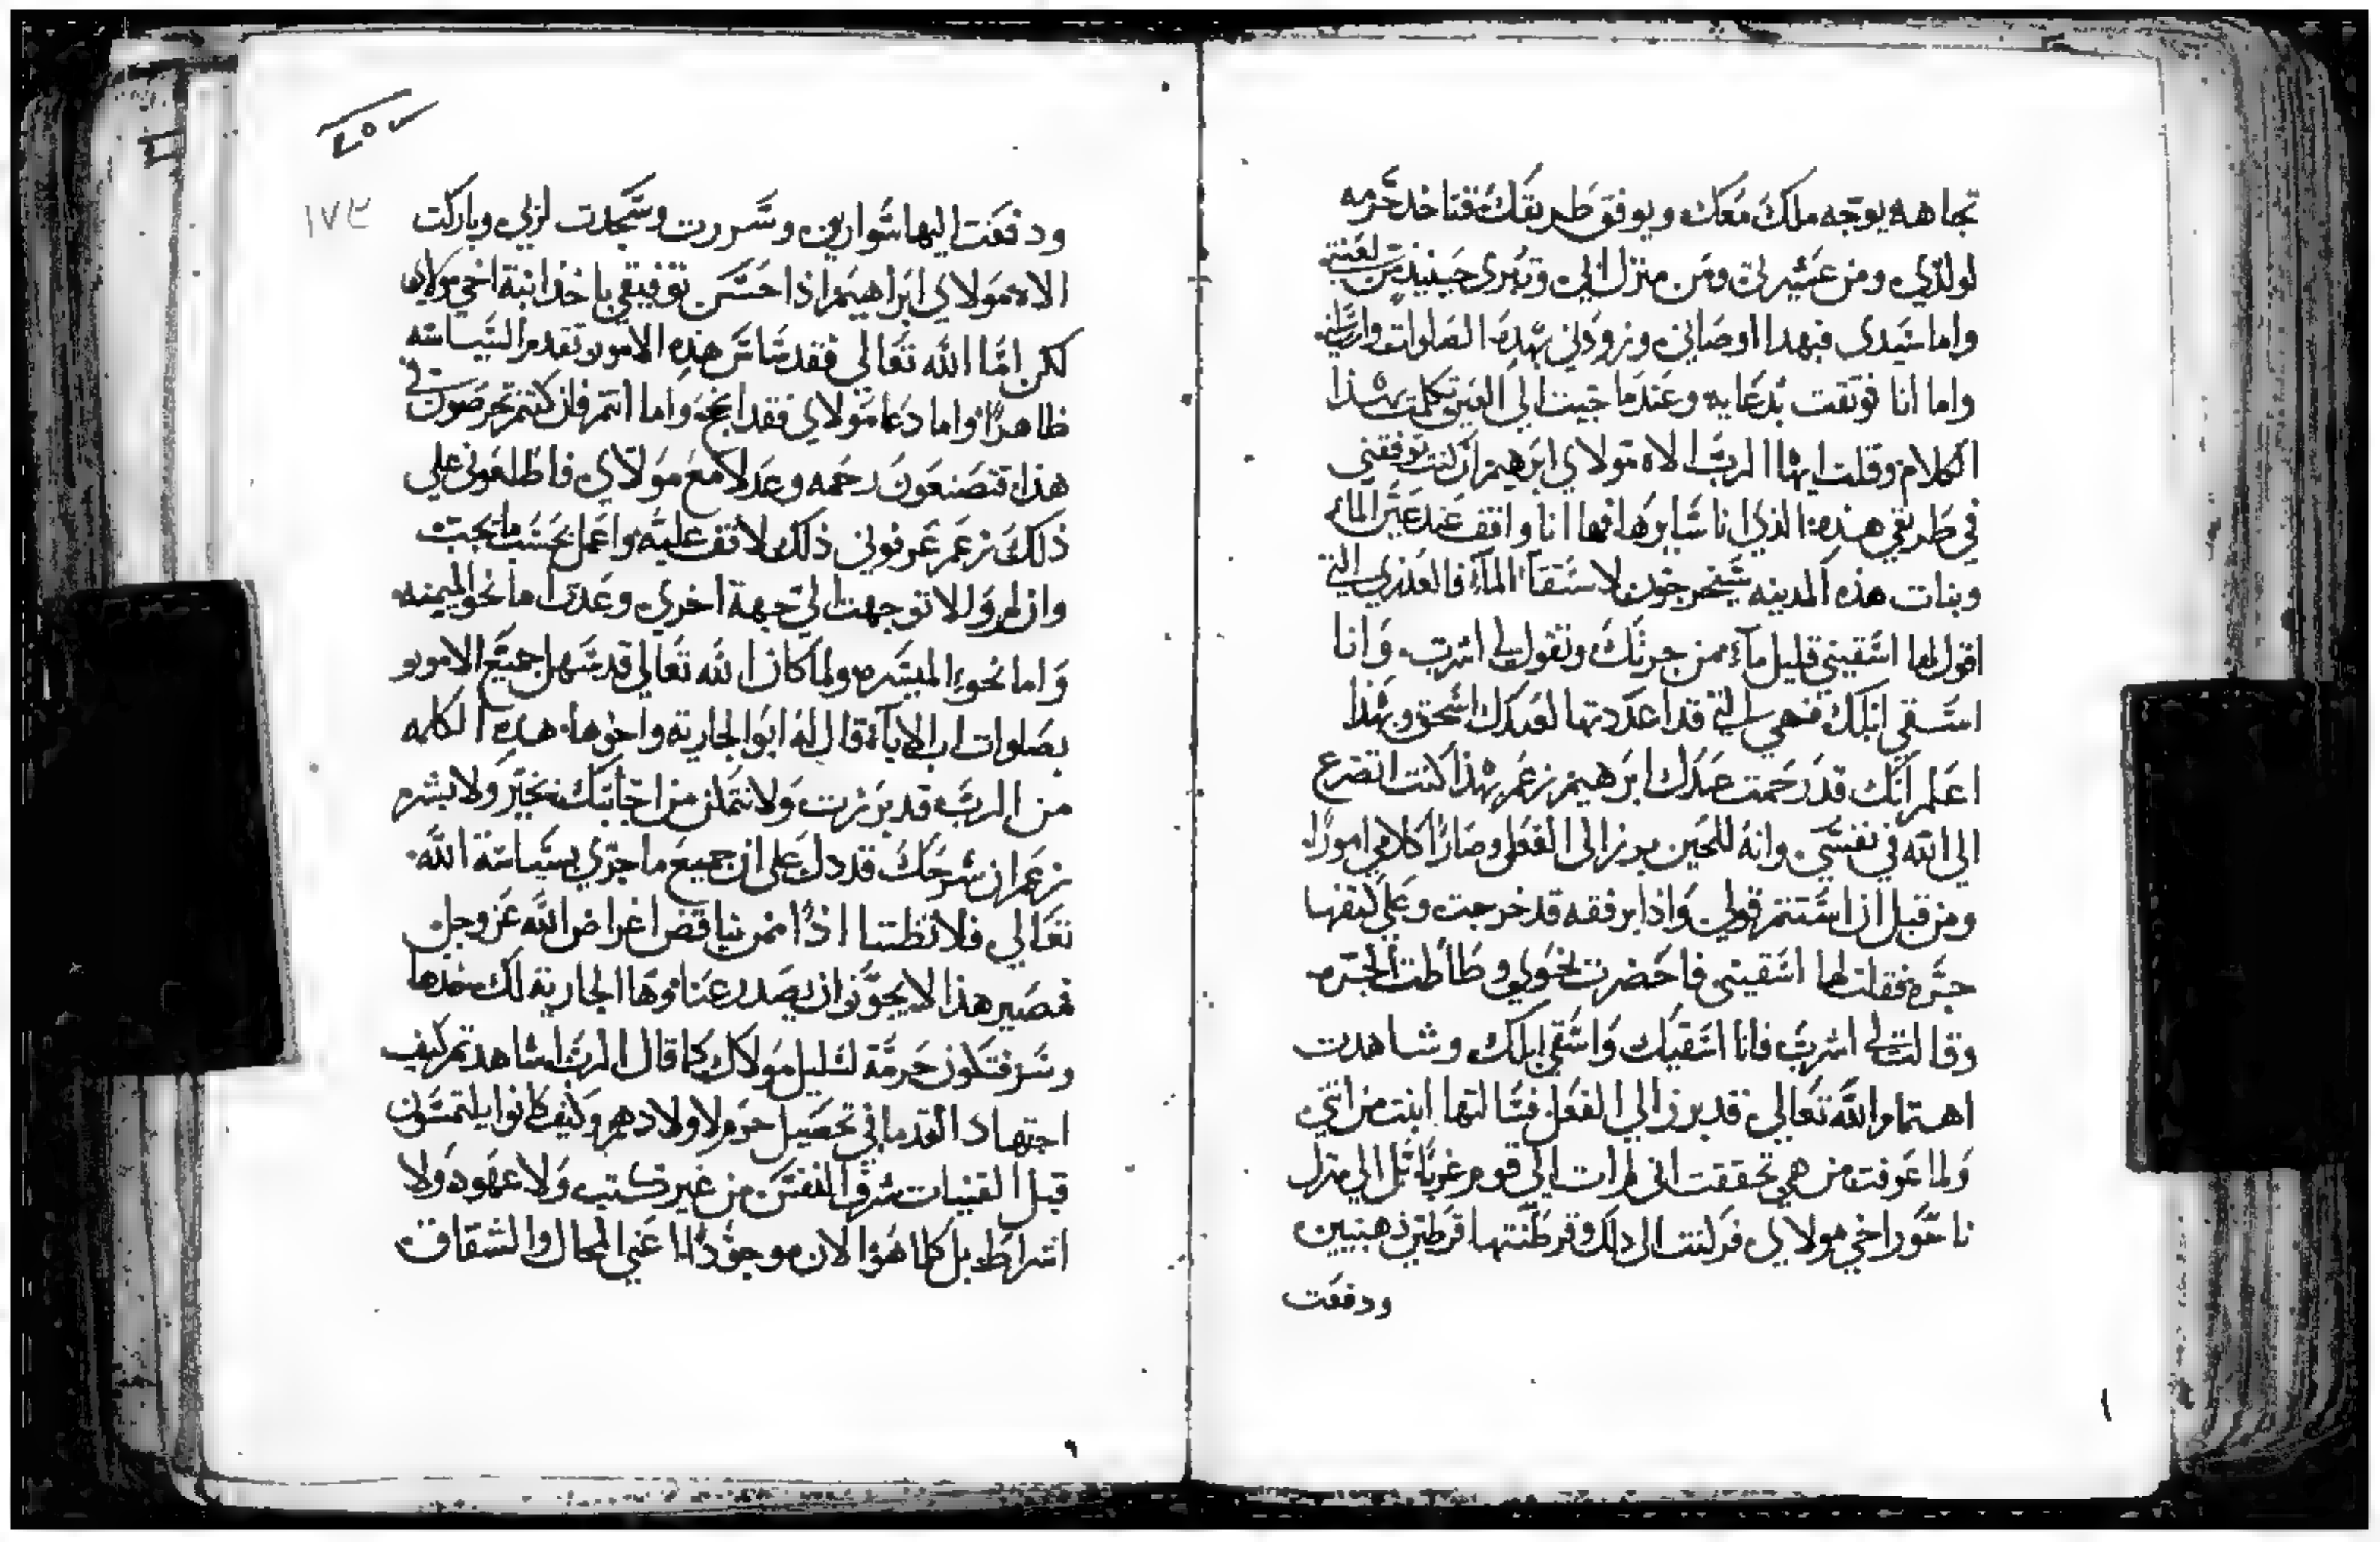 تجاهه يوجه ملكك معك ويوفق طريقك فتاخد حرمه
لولدي ومن عشيرتي ومن منزل ابي وتبرى حينيد من لعنتي
واما سيدى فبهدا اوصانى وزودني بهده الصلوات وارسلني
واما انا فوثقت بدعايه وعندما جيت الى العين تكلمت بهذا
الكلام وقلت ايها الرب الاه مولاي ابرهيم ان كنت توفقني
في طريقي هذه الذي انا سايرها فها انا واقف عند عين الماء
وبنات هذه المدينه سيخرجون لاستقاء الماء فالعذرى التي
اقول لها اسقيني قليل ماء من جرتك وتقول لي اشرب وانا
استسقي ابلك فهي التي قد اعددتها لعبدك اسحق وبهذا
اعلم انك قد رحمت عبدك ابرهيم نعم بهذا كنت اتضرع
الى الله في نفسي وانه للحين برز الى الفعل وصار كلامي امورا
ومن قبل ان استتم قولي واذا برفقه قد خرجت وعلى كتفها
جره فقلت لها اسقينى فاحضرت نحوي وطاطت الجره
وقالت لي اشرب فانا اسقيك واسقي ابلك وشاهدت
اهتمام الله تعالى قد برز الى الفعل فسالتها ابنت من انتي
ولما عرفت من هي تحققت انى لم ات الى قوم غربا بل الى منزل
ناحور اخي مولاي فركنت الى دلك وقرطنتها قرطين ذهبيين
ودفعت
ودفعت اليها سوارين وسررت وسجدت لربي وباركت
الاه مولاي ابراهيم اذا حسن توفيقي باخذ ابنة اخي مولاي
لكن اما الله تعالى فقد ساس هذه الامور وتقدم السياسه
ظاهرا واما دعا مولاي فقد انجح واما انتم فان كنتم تحرصون في
هذا فتصنعون رحمه وعدلا مع مولاي فاطلعوني على
ذلك نعم عرفوني ذلك لاقف عليه واعمل بحسب ما يجب
وان لم والا توجهت الى جهة اخرى وعدت اما نحو الميمنه
واما نحو الميسره ولما كان الله تعالى قد سهل جميع الامور
بصلوات اب الاباء قال له ابو الجاريه واخوها هذه الكلمه
من الرب قد برزت ولا نتمكن من اجابتك بخير ولا بشر
نعم ان شرحك قد دل على ان جميع ما جرى بسياسة الله
تعالى فلا تظننا اذا ممن نناقض اغراض الله عز وجل
فصير هذا لا يجوز ان يصدر عنا فوها الجارية لك خدها
وسر فتكون حرمة لسليل مولاك كما قال الرب اشاهدتم كيف
اجتهاد القدما في تحصيل حرم لاولادهم وكيف كانوا يلتمسون
قبل القنيات شرف النفس من غير كتب ولا عهود ولا
اشراط بل كلما هو الان موجودا اعني المحال والشقاق
١٧٣